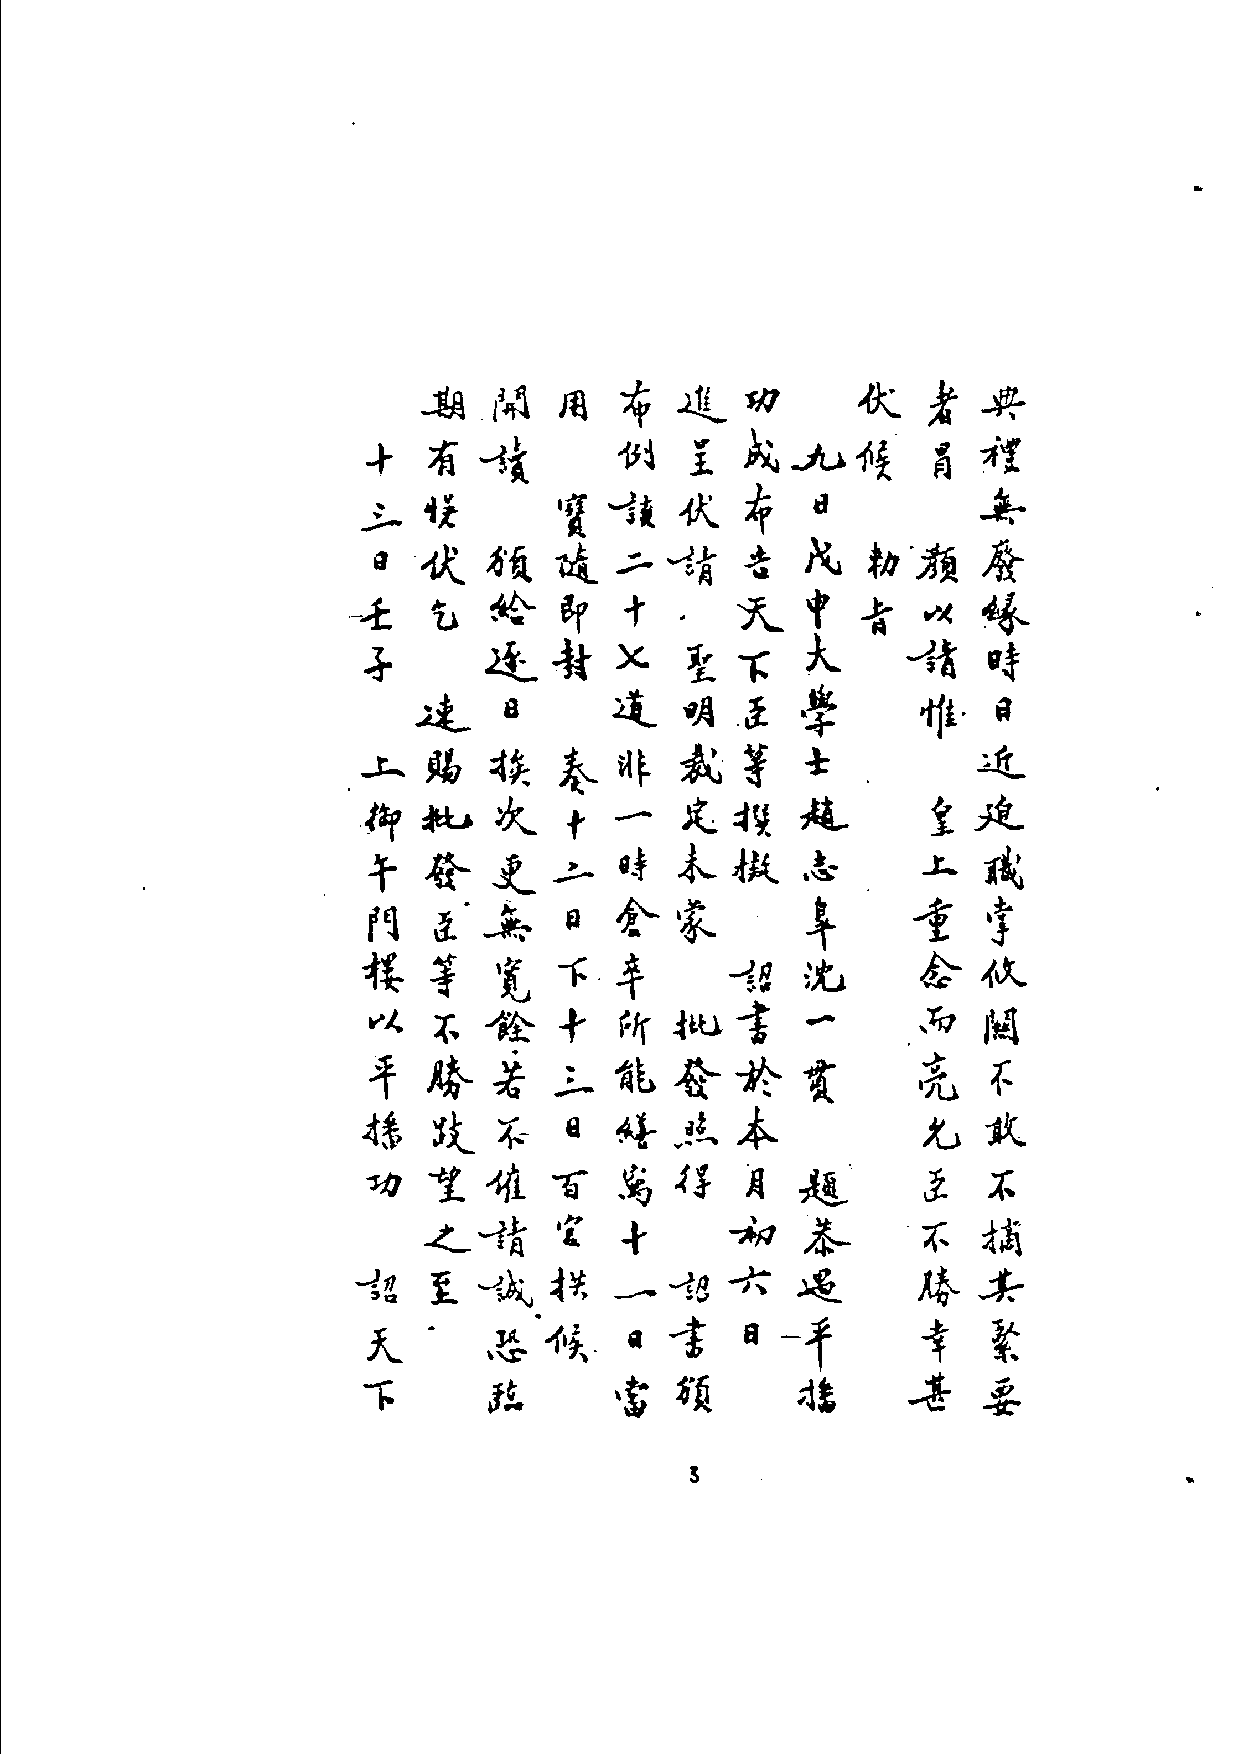 典禮無廢緣時日近迫職掌攸關不敢不摘其緊要
者冒　顏以請惟　皇上重念而亮允臣不勝幸甚
伏候　勅旨
九日戊申大學士趙志皐沈一貫　題恭遇平播
功成布告天下臣等撰擬　詔書於本月初六日
進呈伏請　聖明裁定未蒙　批發照得　詔書頒
布例該二十七道非一時倉卒所能繕寫十一日當
用　寶隨即封　奏十二日下十三日百官拱候
開讀　頒給逐日挨次更無寬餘若不催請誠恐臨
期有悞伏乞　速賜批發臣等不勝跂望之至
十三日壬子　上御午門樓以平播功　詔天下
3